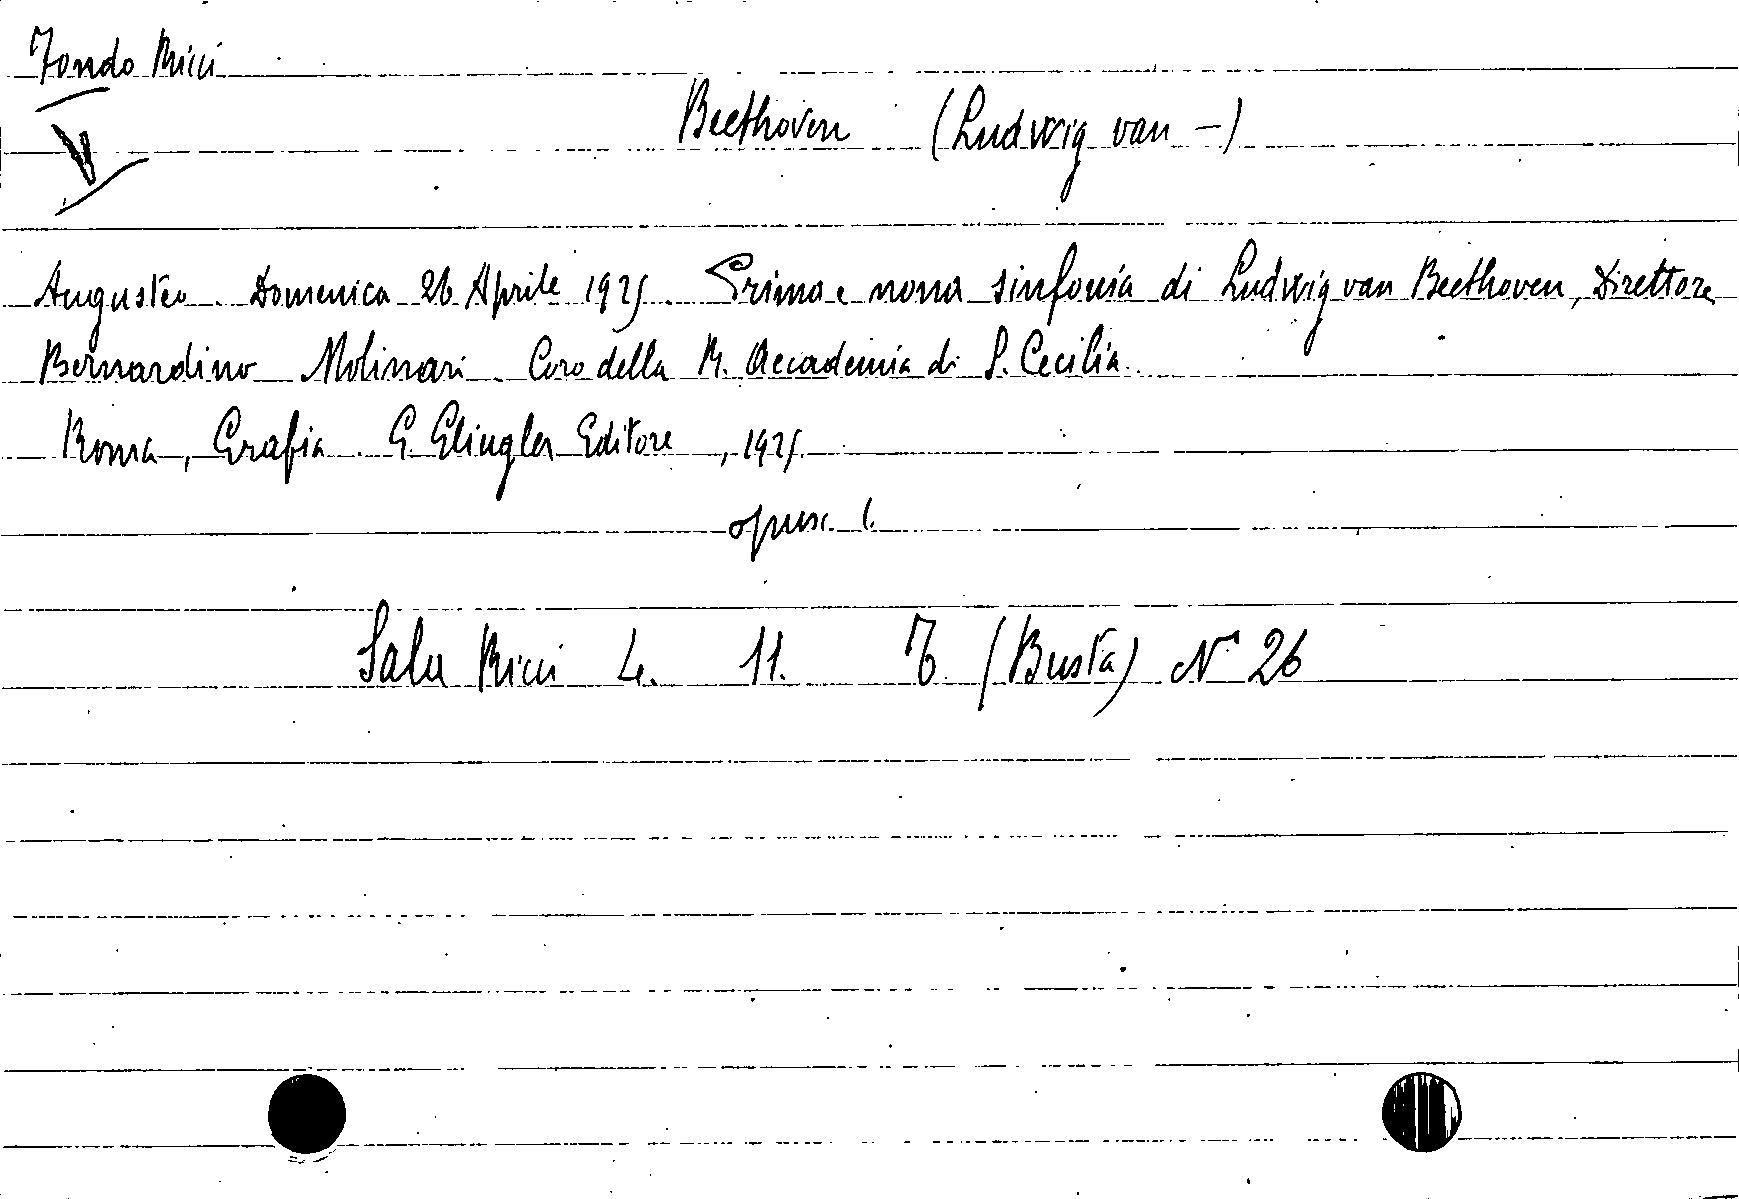 Fondo Ricci
V
Beethoven (Ludwig van -)
Augusteo. Domenica 26 Aprile 1925. Prima e nona sinfonia di Ludwig van Beethoven, Direttore
Bernardino Molinari. Coro della R. Accademia di S. Cecilia.
Roma, Grafia. G. Glingler Editore, 1925.
opusc. 1.
Sala Ricci 4. 11. 7 (Busta) N° 26